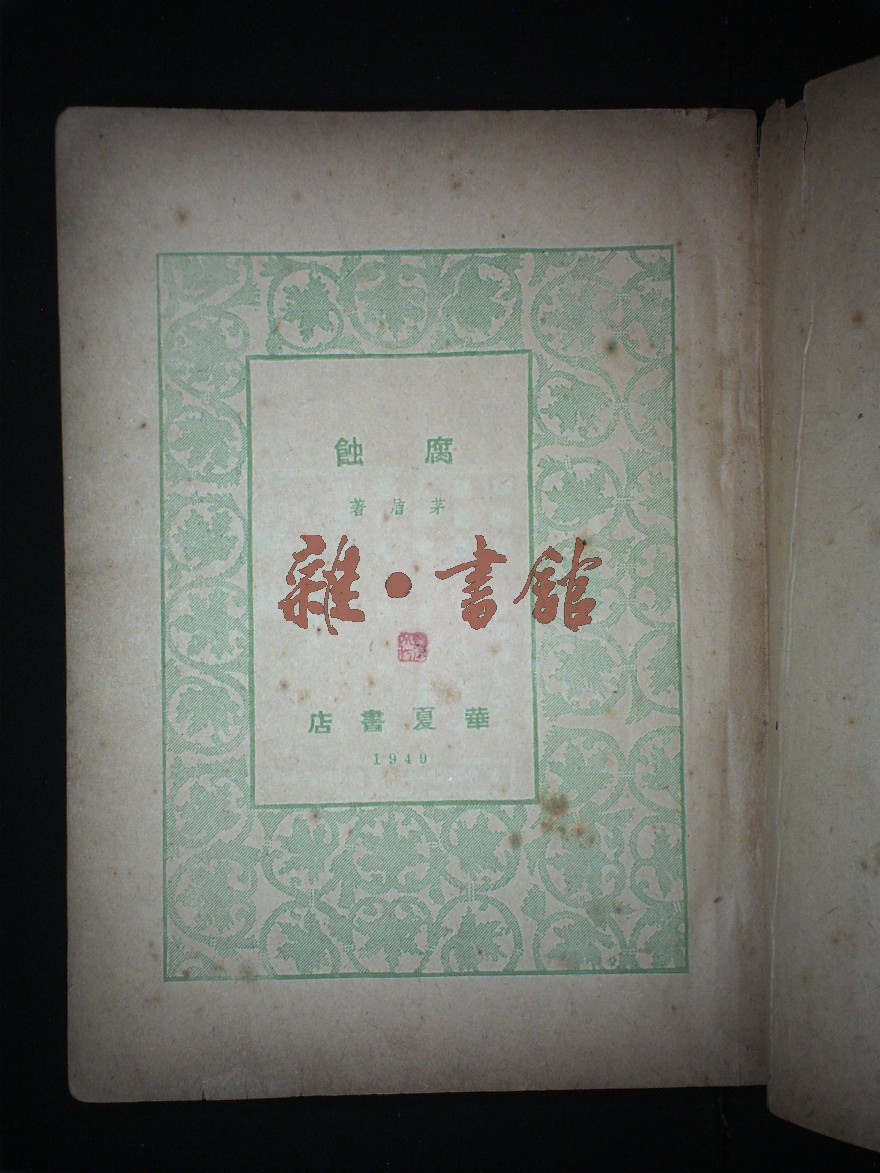 腐蝕
茅盾著
雜·書館
華夏書店
1949